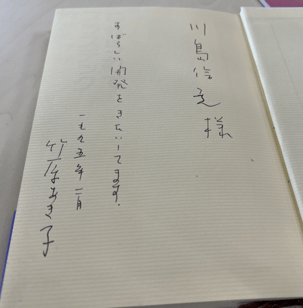 川島信之様
すばらしい開発をきたいしてます。
一九九五年一月
竹内あき子